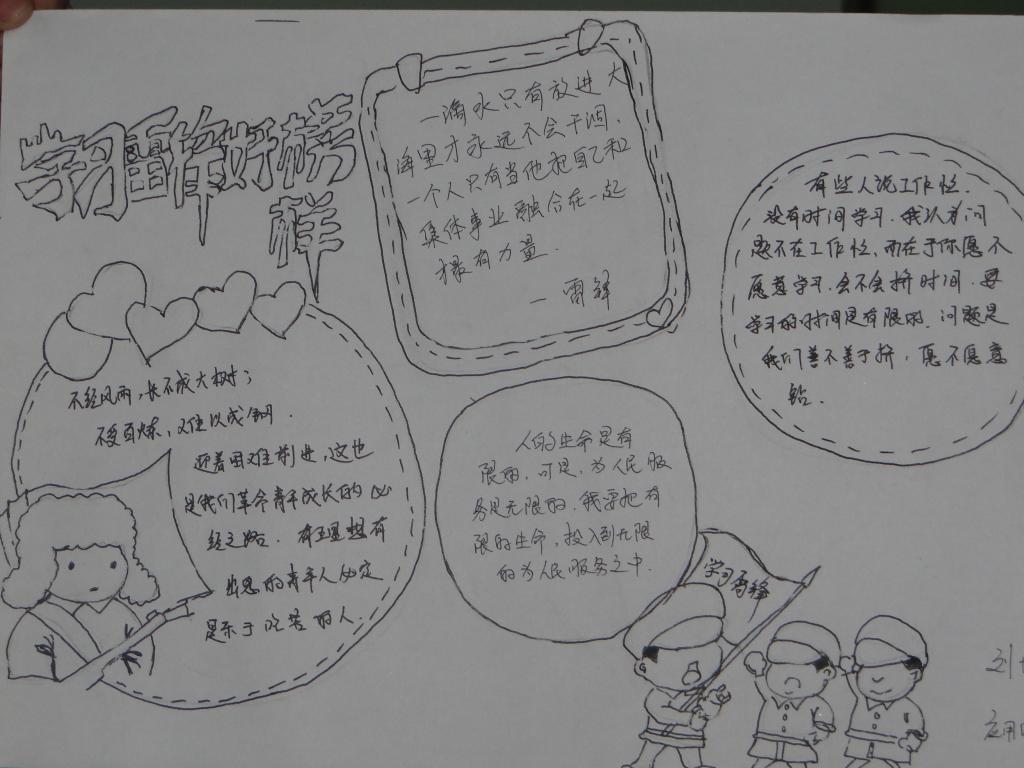 学习雷锋好榜
样
一滴水只有放进大
海里才永远不会干涸,
一个人只有当他把自己和
集体事业融合在一起
才最有力量.
一雷锋
有些人说工作忙.
没有时间学习.我认为问
题不在工作忙,而在于你愿不
愿意学习,会不会挤时间.要
学习的时间是有限的.问题是
我们善不善于挤,愿不愿意
钻.
不经风雨,长不成大树;
不受百炼,难以成钢.
迎着困难前进,这也
是我们革命青年成长的必
经之路.有理想有
出息的青年人必定
是乐于吃苦的人.
人的生命是有
限的,可是,为人民服
务是无限的,我要把有
限的生命,投入到无限
的为人民服务之中.
学习雷锋
刘